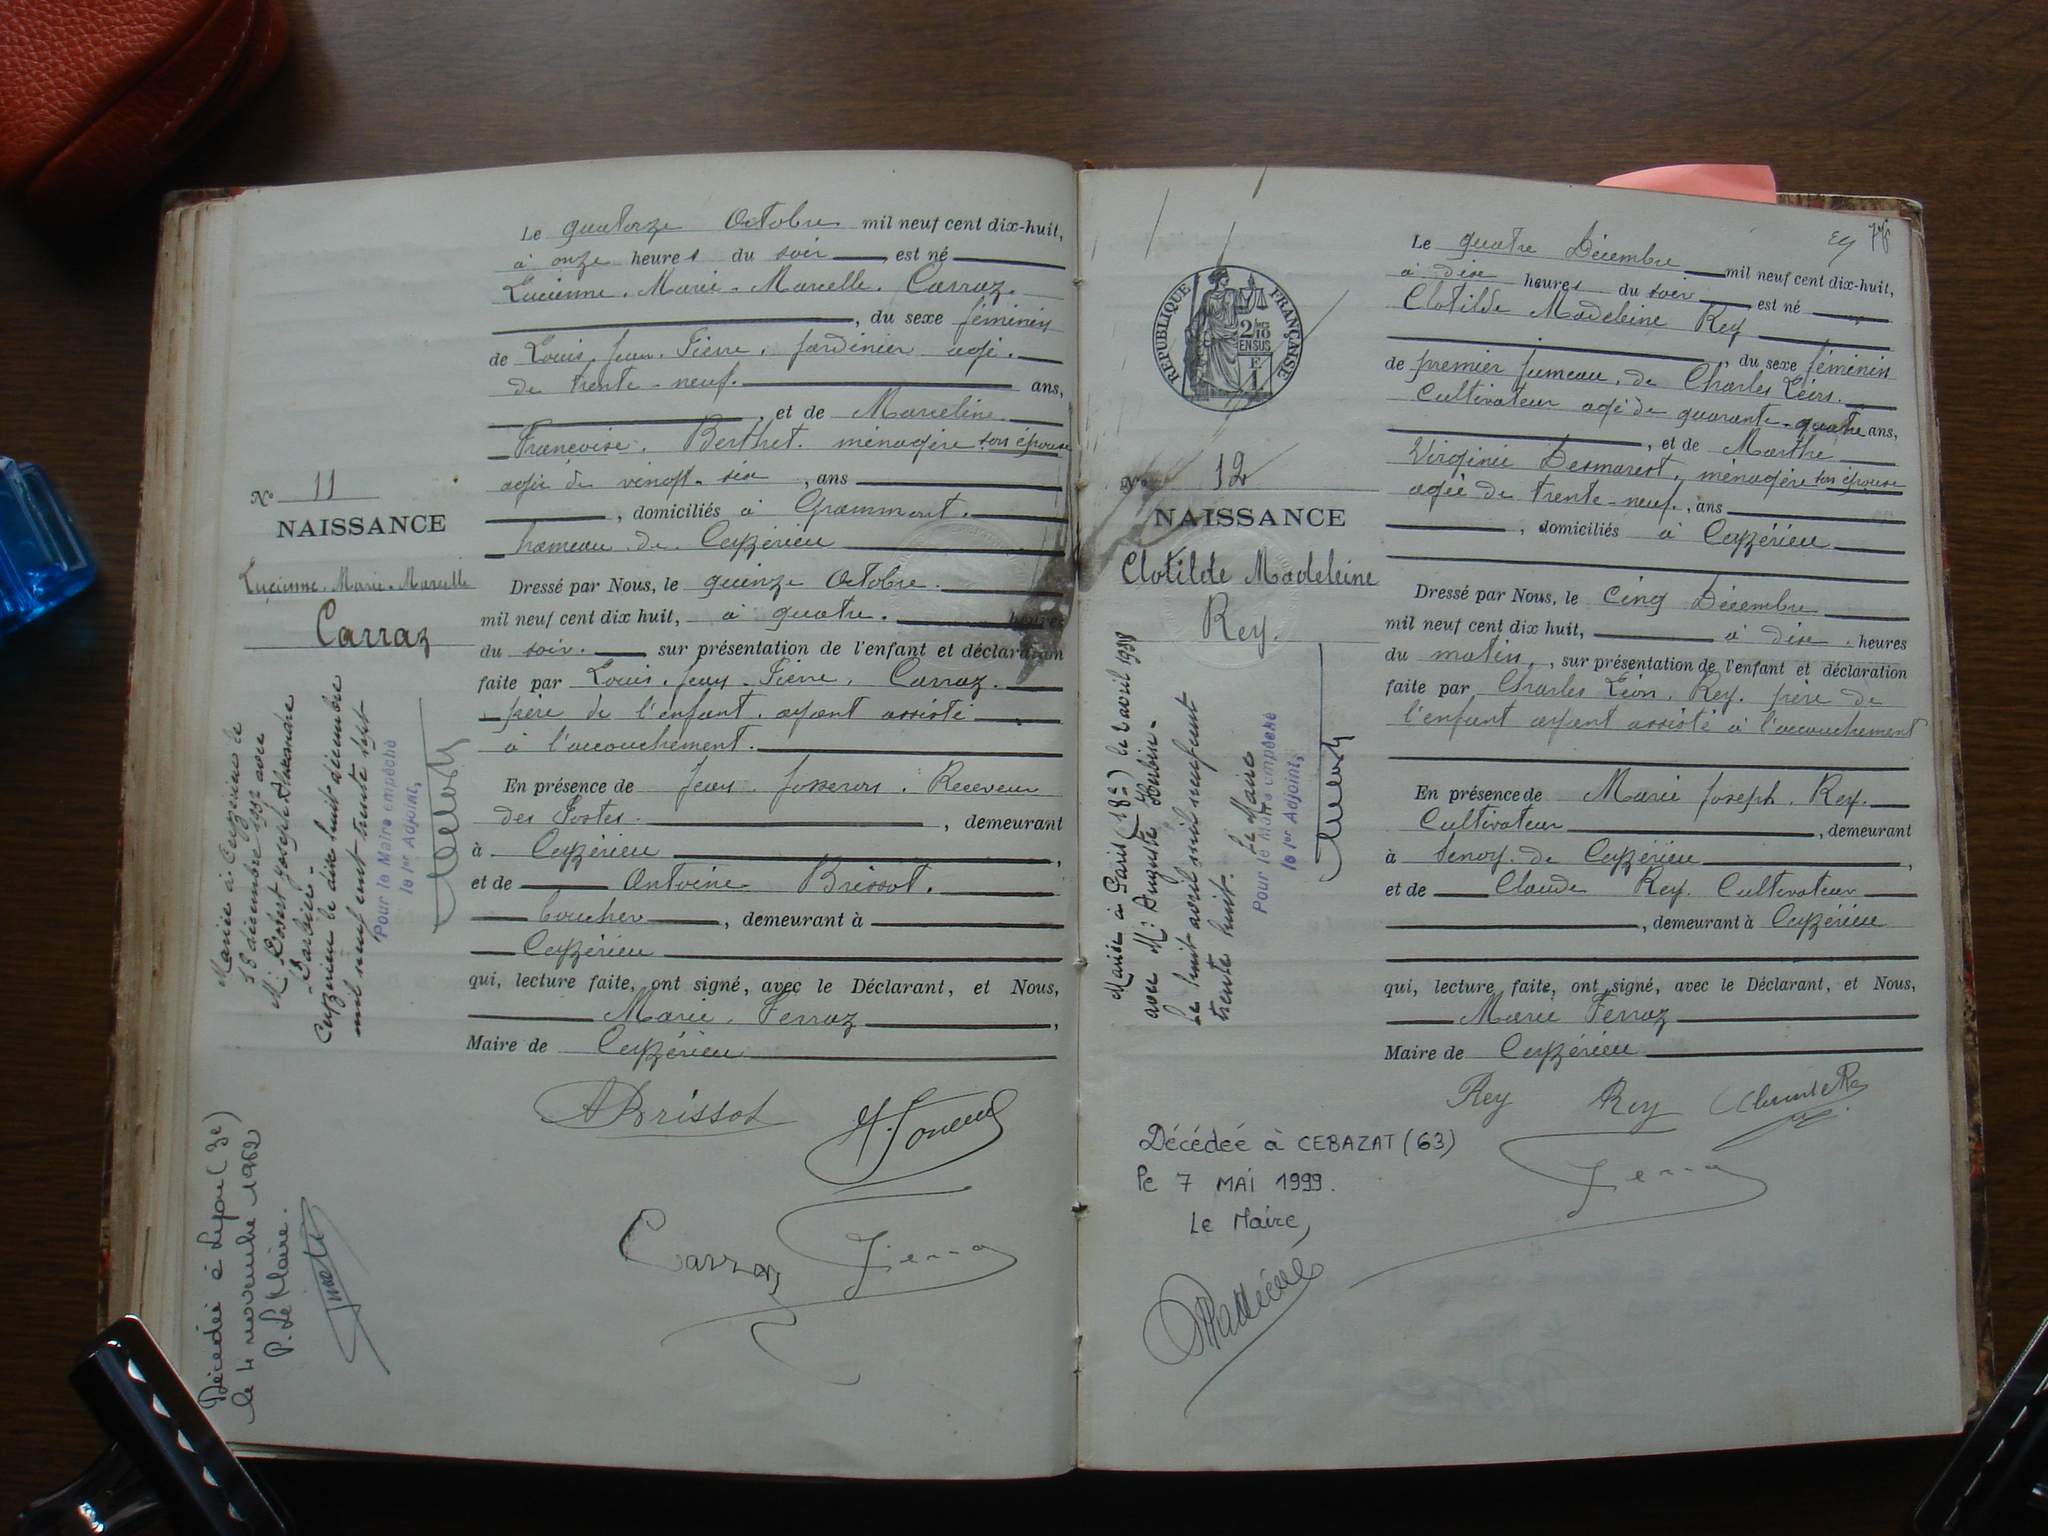 Le quatorze Octobre mil neuf cent dix-huit,
à onze heures du soir, est né
Lucienne. Marie-Marcelle. Carraz.
, du sexe féminin
de Louis. Jean. Pierre. Jardinier agé.
de trente-neuf. ans,
, et de Marceline.
Françoise. Berthet. ménagère son épouse
agée de vingt-six, ans
, domiciliés à Grammont.
hameau de Ceyzérieu
No 11
NAISSANCE
Lucienne. Marie-Marcelle
Carraz
Dressé par Nous, le quinze Octobre.
mil neuf cent dix huit, à quatre. heures
du soir. sur présentation de l'enfant et déclaration
faite par Louis. Jean. Pierre. Carraz.
père de l'enfant. ayant assisté
à l'accouchement.
En présence de Jean. Receveur
des Postes. , demeurant
à Ceyzérieu ,
et de Antoine Brissot.
boucher , demeurant à
Ceyzérieu
qui, lecture faite, ont signé, avec le Déclarant, et Nous,
Marie. Ferraz ,
Maire de Ceyzérieu
Mariée à Ceyzérieu le
18 décembre 1937 avec
M: Robert Joseph Alexandre
Ceyzérieu le dix huit décembre
mil neuf cent trente sept
Pour le Maire empêché
le 1er Adjoint,
ABrissot
Carraz
Ferraz
Décédée à Lyon (3e)
le 4 novembre 1962
P. Le Maire.
78
RÉPUBLIQUE FRANÇAISE
2/10
EN SUS
Le quatre Décembre mil neuf cent dix-huit,
à dix heures du soir est né
Clotilde Madeleine Rey
, du sexe féminin
de premier jumeau, de Charles Léon.
Cultivateur agé de quarante-quatre ans,
, et de Marthe
Virginie Desmarest, ménagère son épouse
agée de trente-neuf., ans
, domiciliés à Ceyzérieu
No 12
NAISSANCE
Clotilde Madeleine
Rey.
Dressé par Nous, le Cinq Décembre
mil neuf cent dix huit, à dix. heures
du matin, sur présentation de l'enfant et déclaration
faite par Charles Léon. Rey. père de
l'enfant ayant assisté à l'accouchement
En présence de Marie Joseph. Rey.
Cultivateur , demeurant
à Senoy. de Ceyzérieu ,
et de Claude Rey. Cultivateur
, demeurant à Ceyzérieu
qui, lecture faite, ont signé, avec le Déclarant, et Nous,
Marie Ferraz
Maire de Ceyzérieu
Mariée à Paris (18e) le 2 avril 1938
avec M: Auguste Herbin-
Le huit avril mil neuf cent
trente huit. Le Maire
Pour le Maire empêché
le 1er Adjoint,
Rey Rey Claude Rey
Ferraz
Décédeé à CEBAZAT (63)
le 7 MAI 1999.
Le Maire,